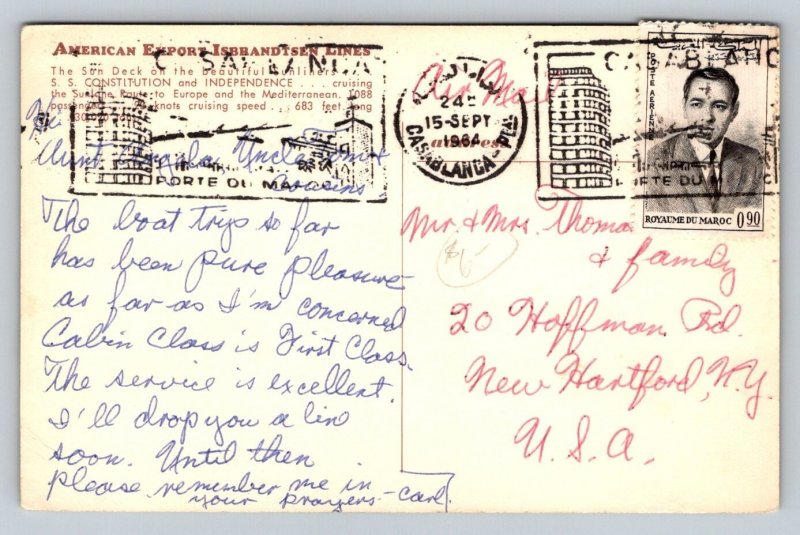 AMERICAN EXPORT ISBRANDTSEN LINES
The Sun Deck on the beautiful Sunliners
S. S. CONSTITUTION and INDEPENDENCE . . . cruising
the Sunlane Route to Europe and the Mediterranean. 1088
passengers . . . knots cruising speed . . . 683 feet long
CASABLANCA
PORTE DU
CASABLANCA
15-SEPT
1964
CASABLANCA
CASABLANC
PORTE DU M
POSTE AERIENNE
ROYAUME DU MAROC 0.90
Air Mail
Aunt Angela, Uncle Tom &
Cousins
The boat trip so far
has been pure pleasure
as far as I'm concerned
Cabin Class is First Class.
The service is excellent.
I'll drop you a line
soon. Until then
please remember me in
your prayers - Carl
Mr. & Mrs. Thoma
& family
20 Hoffman Rd.
New Hartford, N.Y.
U.S.A.